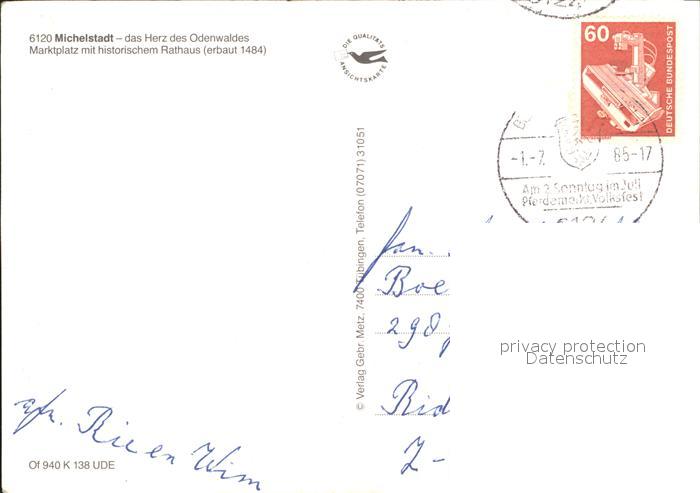 6120 Michelstadt – das Herz des Odenwaldes
Marktplatz mit historischem Rathaus (erbaut 1484)
DIE QUALITÄTS
ANSICHTSKARTE
60
DEUTSCHE BUNDESPOST
-1.-7. 85-17
Am 2. Sonntag im Juli
Pferdemarkt, Volksfest
© Verlag Gebr. Metz, 7400 Tübingen, Telefon (07071) 31051
fam.
Boe
298
Rid
Z-
privacy protection
Datenschutz
afz. Rie en Wim
Of 940 K 138 UDE